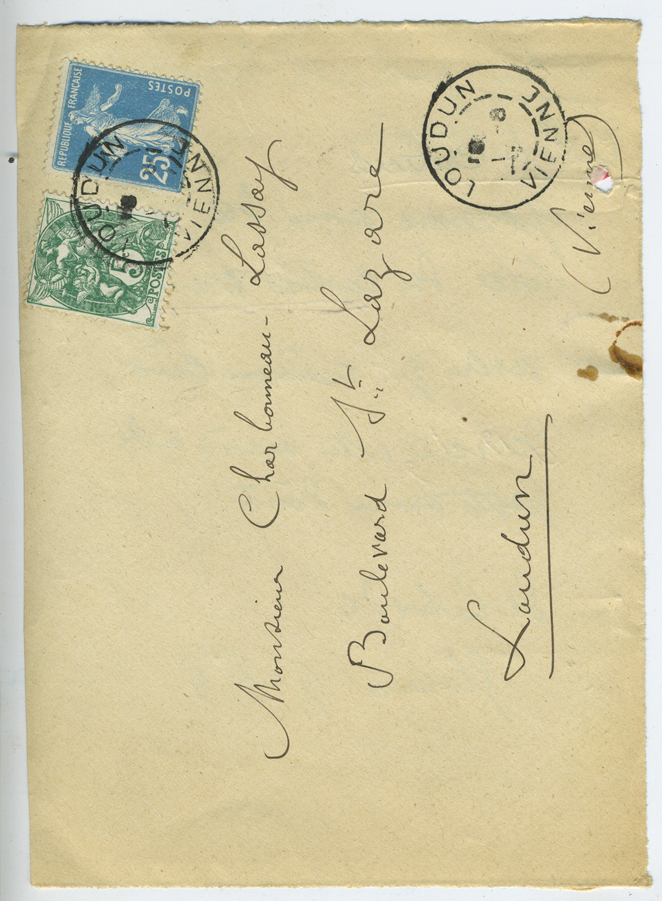 REPUBLIQUE FRANÇAISE
25c
POSTES
5c
POSTES
LOUDUN
VIENNE
LOUDUN
VIENNE
Monsieur Charbonneau-Lassay
Boulevard St. Lazare
Loudun
(Vienne)